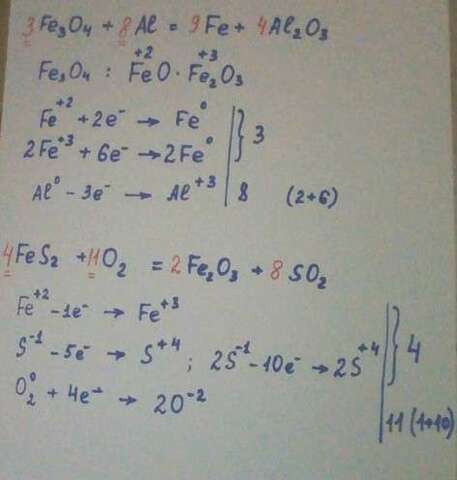 3Fe₃O₄ + 8Al = 9Fe + 4Al₂O₃
Fe₃O₄ : Fe⁺²O · Fe₂⁺³O₃
Fe⁺² + 2e⁻ → Fe⁰ | } 3
2Fe⁺³ + 6e⁻ → 2Fe⁰
Al⁰ - 3e⁻ → Al⁺³ | 8 (2+6)
4FeS₂ + 11O₂ = 2Fe₂O₃ + 8SO₂
Fe⁺² - 1e⁻ → Fe⁺³
S⁻¹ - 5e⁻ → S⁺⁴ ; 2S⁻¹ - 10e⁻ → 2S⁺⁴ | } 4
O₂⁰ + 4e⁻ → 2O⁻²
11 (1+10)